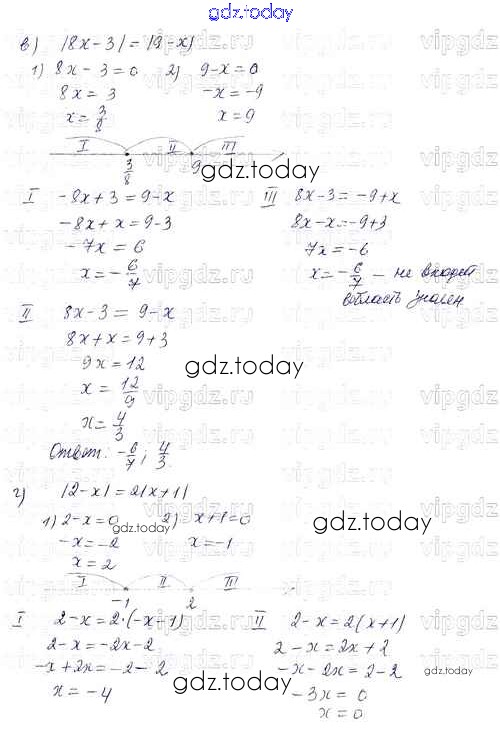 gdz.today
в) |8x-3| = |9-x|
1) 8x-3=0 2) 9-x=0
8x=3 -x=-9
x=3/8 x=9
I II III
3/8 9
gdz.today
I -8x+3=9-x III 8x-3=-9+x
-8x+x=9-3 8x-x=-9+3
-7x=6 7x=-6
x=-6/7 x=-6/7 - не входит
область значен.
II 8x-3=9-x
8x+x=9+3
9x=12
gdz.today
x=12/9
x=4/3
Ответ: -6/7; 4/3
г) |2-x|=2|x+1|
1) 2-x=0 2) x+1=0
gdz.today gdz.today
-x=-2 x=-1
x=2
I II III
-1 2
I 2-x=2·(-x-1) II 2-x=2(x+1)
2-x=-2x-2 2-x=2x+2
-x+2x=-2-2 -x-2x=2-2
gdz.today
x=-4 -3x=0
gdz.today
x=0
vipgdz.ru